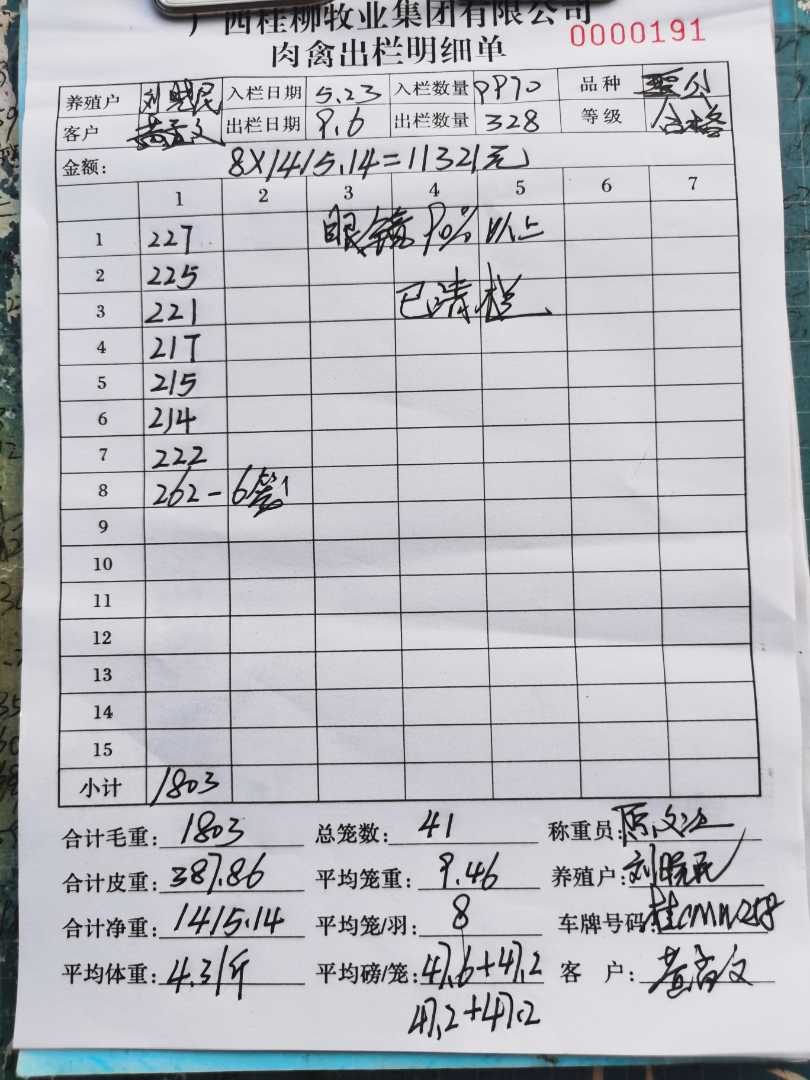 广西桂柳牧业集团有限公司
肉禽出栏明细单 0000191
养殖户 刘晓民 入栏日期 5.23 入栏数量 9970 品种
客户 出栏日期 9.6 出栏数量 328 等级 合格
金额: 8×1415.14=11321元
1 2 3 4 5 6 7
1 227 眼镜90%以上
2 225
3 221 已清栏
4 217
5 215
6 214
7 222
8 262-6笼
9
10
11
12
13
14
15
小计 1803
合计毛重: 1803 总笼数: 41 称重员:
合计皮重: 387.86 平均笼重: 9.46 养殖户: 刘晓民
合计净重: 1415.14 平均笼/羽: 8 车牌号码
平均体重: 4.31斤 平均磅/笼: 47.6+47.2 客 户:
47.2+47.2